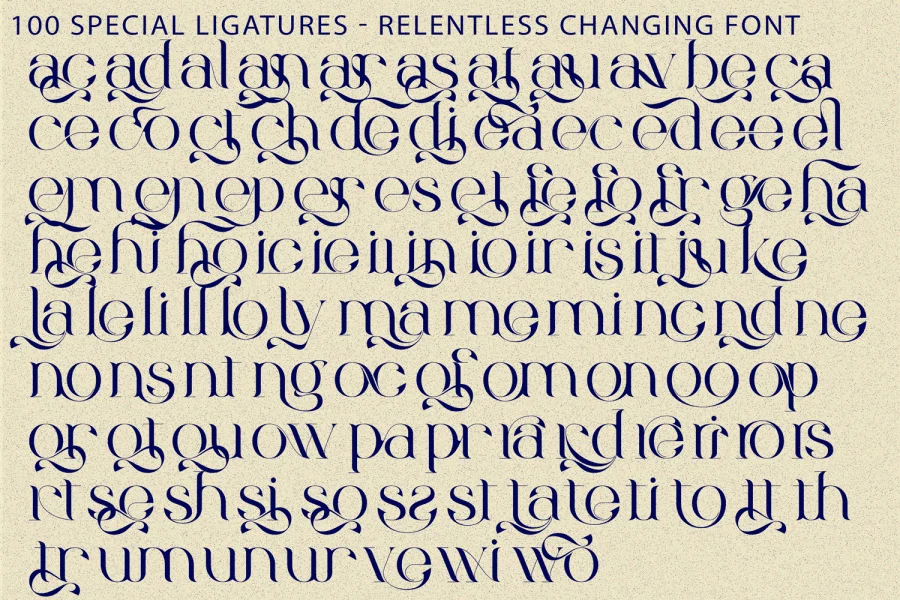 100 SPECIAL LIGATURES - RELENTLESS CHANGING FONT
ac ad al an ar as at au av be ca
ce co ct ch de di ea ec ed ee el
em en ep er es et fe fo fr ge ha
he hi ho ic ie il in io ir is it ju ke
la le li ll lo ly ma me mi nc nd ne
no ns nt ng oc of om on oo op
or ot ou ow pa pr ra rd re ri ro rs
rt se sh si so ss st ta te ti to tt th
tr um un ur ve wi wo